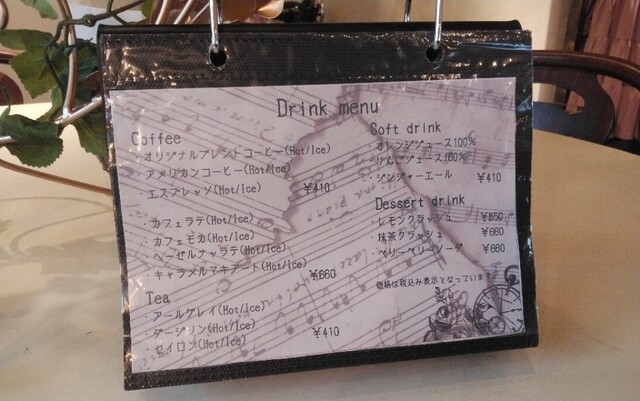 Drink menu
Coffee
・オリジナルブレンドコーヒー(Hot/Ice)
・アメリカンコーヒー(Hot/Ice)
・エスプレッソ(Hot/Ice) ¥410
・カフェラテ(Hot/Ice)
・カフェモカ(Hot/Ice)
・ヘーゼルナッラテ(Hot/Ice)
・キャラメルマキアート(Hot/Ice) ¥660
Tea
・アールグレイ(Hot/Ice)
・ダージリン(Hot/Ice)
・セイロン(Hot/Ice) ¥410
Soft drink
・オレンジジュース100%
・りんごジュース100%
・ジンジャーエール ¥410
Dessert drink
・レモンクラッシュ ¥650
・抹茶クラッシュ ¥660
・ベリーベリーソーダ ¥660
価格は税込み表示となっています